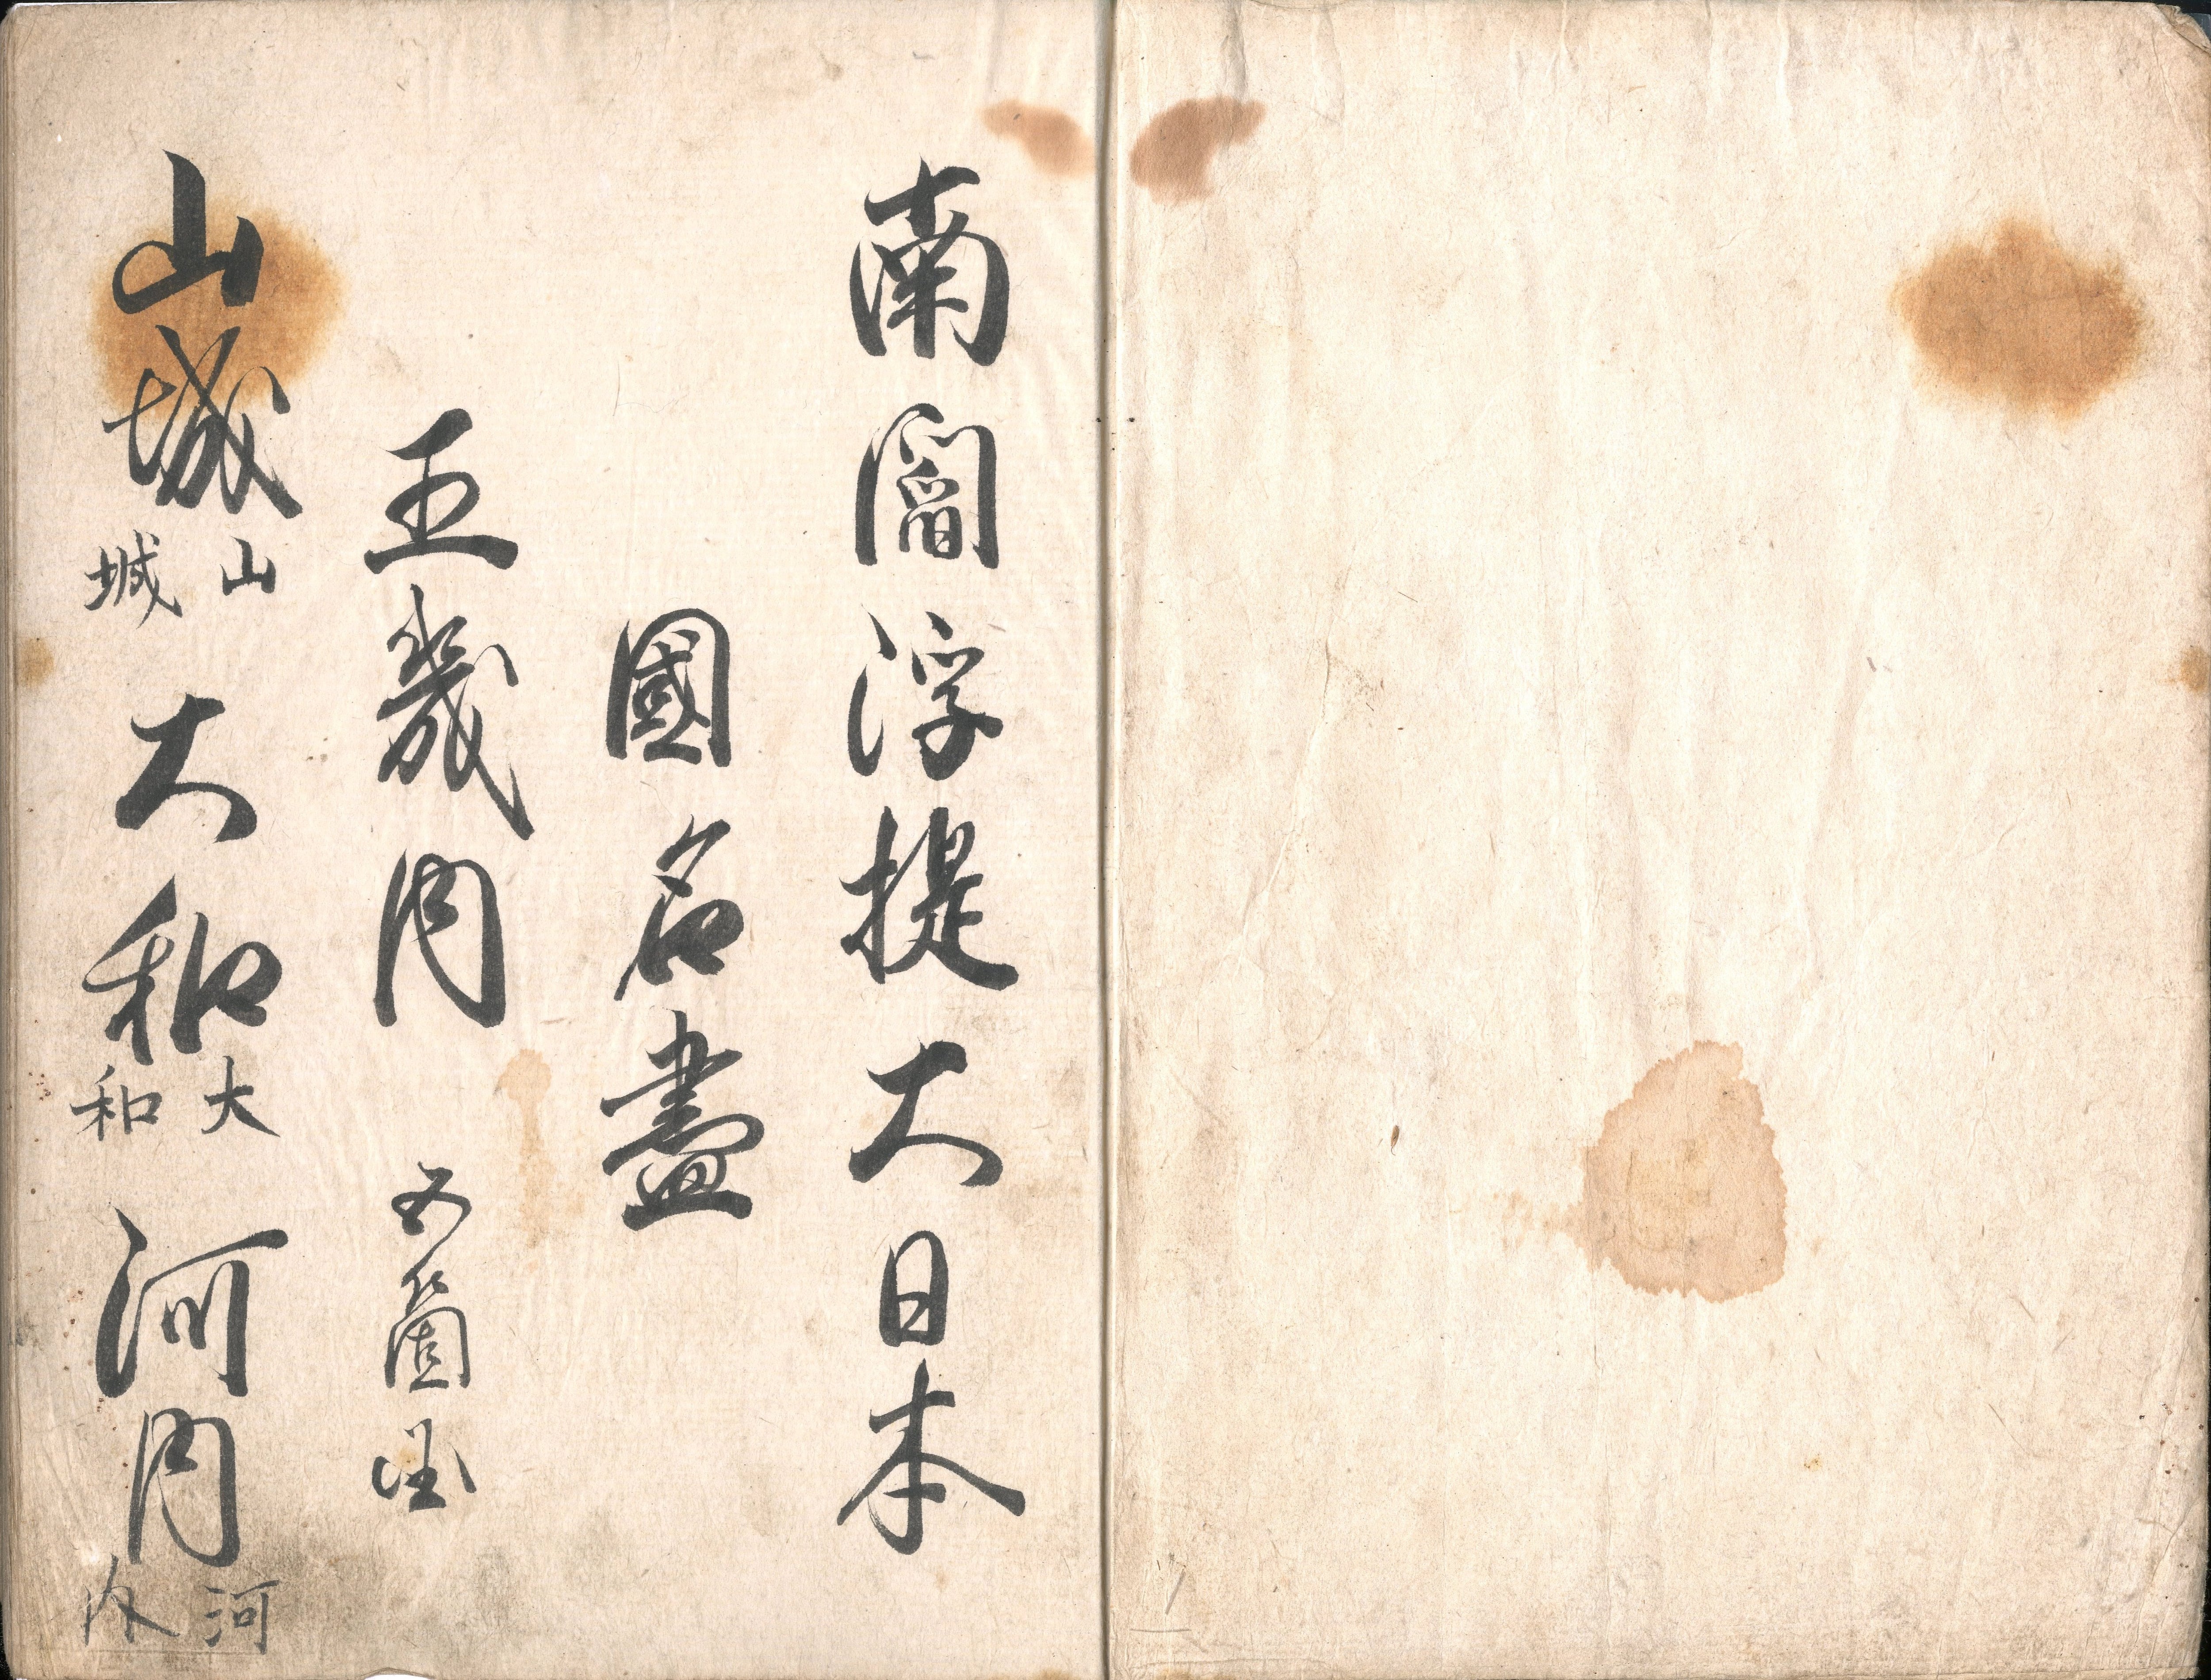 南閻浮提大日本
國名盡
王畿内 五箇國
山城 山城 大和 大和 河内 河内